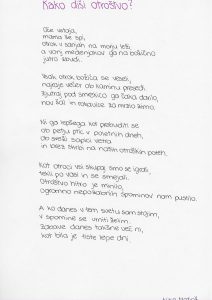 Kako diši otroštvo?
Oče vstaja,
mama še spi,
otrok v sanjah na morju leži
a vonj medenjakov ga na božično
jutro zbudi.
Vsak otrok božiča se veseli,
najraje večer ob kaminu preseti
zjutraj pod smrečico ga čaka darilo,
nov šal in rokavice za mrzlo zimo.
Ni ga lepšega kot prebuditi se
ob petju ptic v poletnih dneh,
ob svetu sončni vetra
in brez skrbi na naših otroških poteh.
Kot otroci vsi skupaj smo se igrali,
tekli po vasi in se smejali.
Otroštvo hitro je minilo,
ogromno nepozabnih spominov nam pustilo.
A ko danes v tem svetu sam stojim,
v spomine se vrniti želim.
Zabave danes takšne več ni,
kot bila je tiste lepe dni.